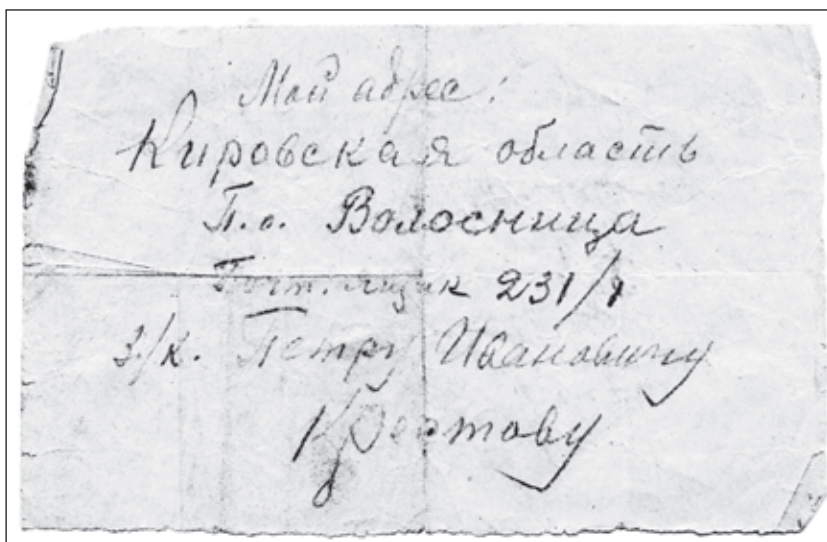 Мой адрес:
Кировская область
П.о. Волосница
Почт. ящик 231/1
з/к. Петру Ивановичу
Крестову